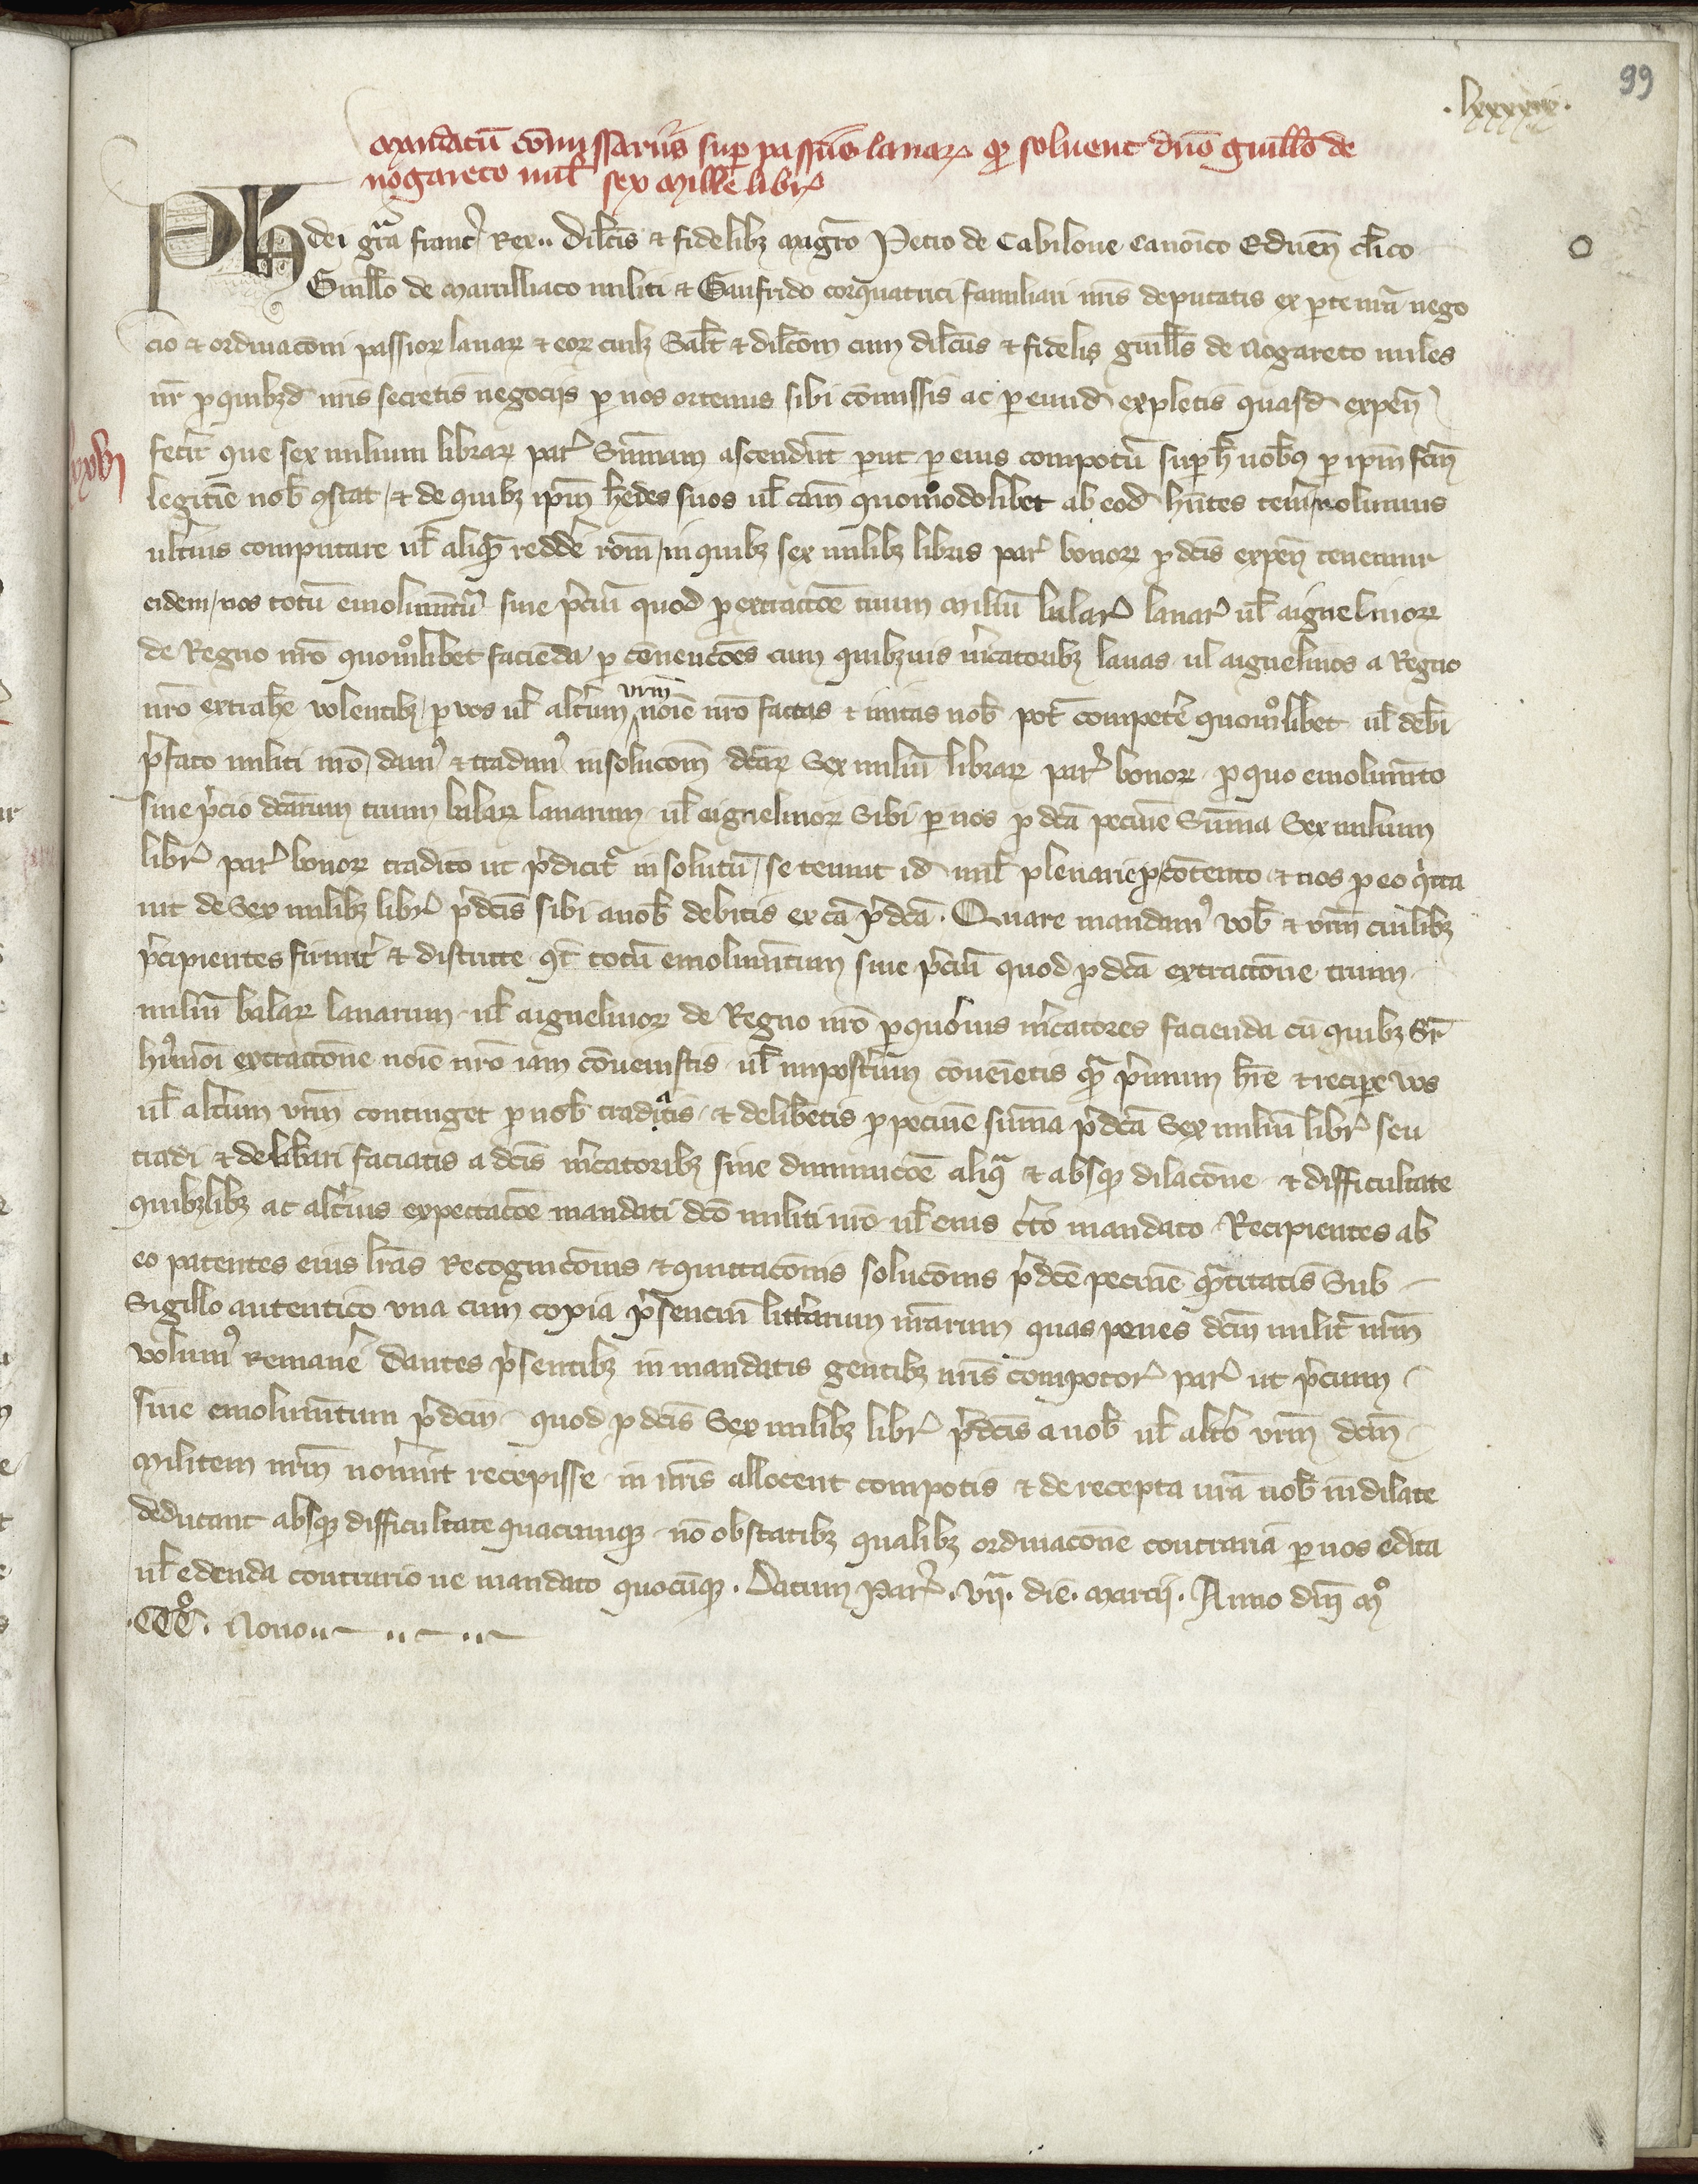 99
·lxxxxix·
mandatū cōmissariis sup passuū lanaꝝ qͥ soluent dn̄o guill̄o de
nogareto mil̄ sex mill̄e libr̄
Ph̄ dei gr̄a franc̄ Rex.. Dilc̄is ⁊ fidelibȝ maḡro Petro de Cabilone Canoīco Eduen̄ cl̄ico
Guill̄o de marcilliaco militi ⁊ Gaufrido cocquatrici familiari nr̄is deputatis ex ꝑte nr̄a nego
cio ⁊ ordinacōni passioꝝ lanaꝝ ⁊ eoꝝ cuilȝ Sal̄t ⁊ dil̄cōm cum dil̄cus ⁊ fidelis guill̄s de Nogareto miles
nr̄ ꝓ quibȝd nr̄is secretis negocijs ꝑ nos ortenus sibi cōmissis ac ꝑ eund expletis quasd expen̄
lxxxvi
fecit que sex milium libraꝝ par̄ Sūmam ascendūt put ꝑ eius compotū sup h̄ nob̄ ꝑ ipm̄ fc̄m
legitīe nob̄ ꝯstat / ⁊ de quibȝ ipm̄ h̄edes suos ul̄ cām quomodolibet ab eod hn̄tes ten̄i nolumus
ult̄ius computare ul̄ aliqm̄ redde rōm / in quibȝ sex milibȝ libris par̄ bonoꝝ ꝓ dc̄is expen̄ tenemur
eidem / nos totū emolumtū siue p̄ciū quod ꝓ extractōe trium miliū balaꝝ lanaꝝ ul̄ aignelinoꝝ
de Regno nr̄o quomͦlibet facienda / ꝑ cōuencōes cum quibȝuis m̄catoribȝ lanas ul aignelinos a Regno
nr̄o extrah̄e uolentibȝ / ꝑ vos ul̄ alt̄um vr̄m noīe nr̄o factas ⁊ initas nob̄ pot̄ compet̄e quomͦlibet ul̄ deb̄i
p̄fato militi nr̄o / damꝰ ⁊ tradimꝰ in solucōm dc̄aꝝ Sex miliū libraꝝ par̄ bonoꝝ ꝓ quo emolumto
siue p̄cio dc̄arum trium balaꝝ lanarum ul̄ aignelinoꝝ Sibi ꝑ nos ꝓ dc̄a pecūie Sūma Sex milium
libr̄ par̄ bonoꝝ tradito ut p̄dicit̄ in solutū / se tenuit id mil̄ plenarie ꝓ cōtento ⁊ nos ꝑ eo q̄tta
uit de Sex milibȝ libr̄ p̄dc̄is sibi a nob̄ debitis ex cā p̄dc̄a. Quare mandamꝰ uob̄ ⁊ vr̄m cuilibȝ
p̄cipientes firmit̄ ⁊ districte qt̄ totū emolumtum siue p̄ciū quod ꝓ dc̄a extractōne trium
miliū balaꝝ lanarum ul̄ aignelinoꝝ de Regno nr̄o ꝑ quouis m̄catores facienda cū quibȝ Sr̄
hꝰmōi extractōne noīe nr̄o iam cōuenistis ul̄ impost̄um cōuenietis qm̄ p̄imum hr̄e ⁊ recipe vos
ul̄ alt̄um vr̄m continget ꝓ nob̄ tradatis ⁊ delib̄etis ꝓ pecūie sūma p̄dc̄a Sex miliū libr̄ seu
tradi ⁊ delib̄ari faciatis a dc̄is m̄catoribȝ siue diminucōe aliqͣ ⁊ absqꝫ dilacōne ⁊ difficultate
quibȝlibȝ ac alt̄ius expectacōe mandati dc̄o militi nr̄o ul̄ eius c̄to mandato Recipientes ab
eo patentes eius lr̄as Recognicōnis ⁊ quittacōnis solucōnis p̄dc̄e pecūie qͣntitatis Sub
Sigillo autentico vna cum copia p̄senciū litt̄arum nr̄arum quas penes dc̄m milit̄ nr̄m
volumꝰ remane̅ Dantes p̄sentibȝ in mandatis gentibȝ nr̄is compotoꝝ par̄ ut p̄cium
siue emolumtum p̄dc̄m quod ꝓ dc̄is Sex milibȝ libr̄ p̄dc̄is a uob̄ ul̄ alt̄o vr̄m dc̄m
militem nr̄m nou̅int recepisse in ur̄is allocent compotis ⁊ de recepta ur̄a uob̄ indilate
deducant absqꝫ difficultate quacumqꝫ nō obstātibȝ qualibȝ ordinacōne contraria ꝑ nos edita
ul̄ edenda contrario ue mandato quocūqꝫ. Datum Par̄. vij. die. marcij. Anno dn̄i mͦ
·CCCͦ. Nono..